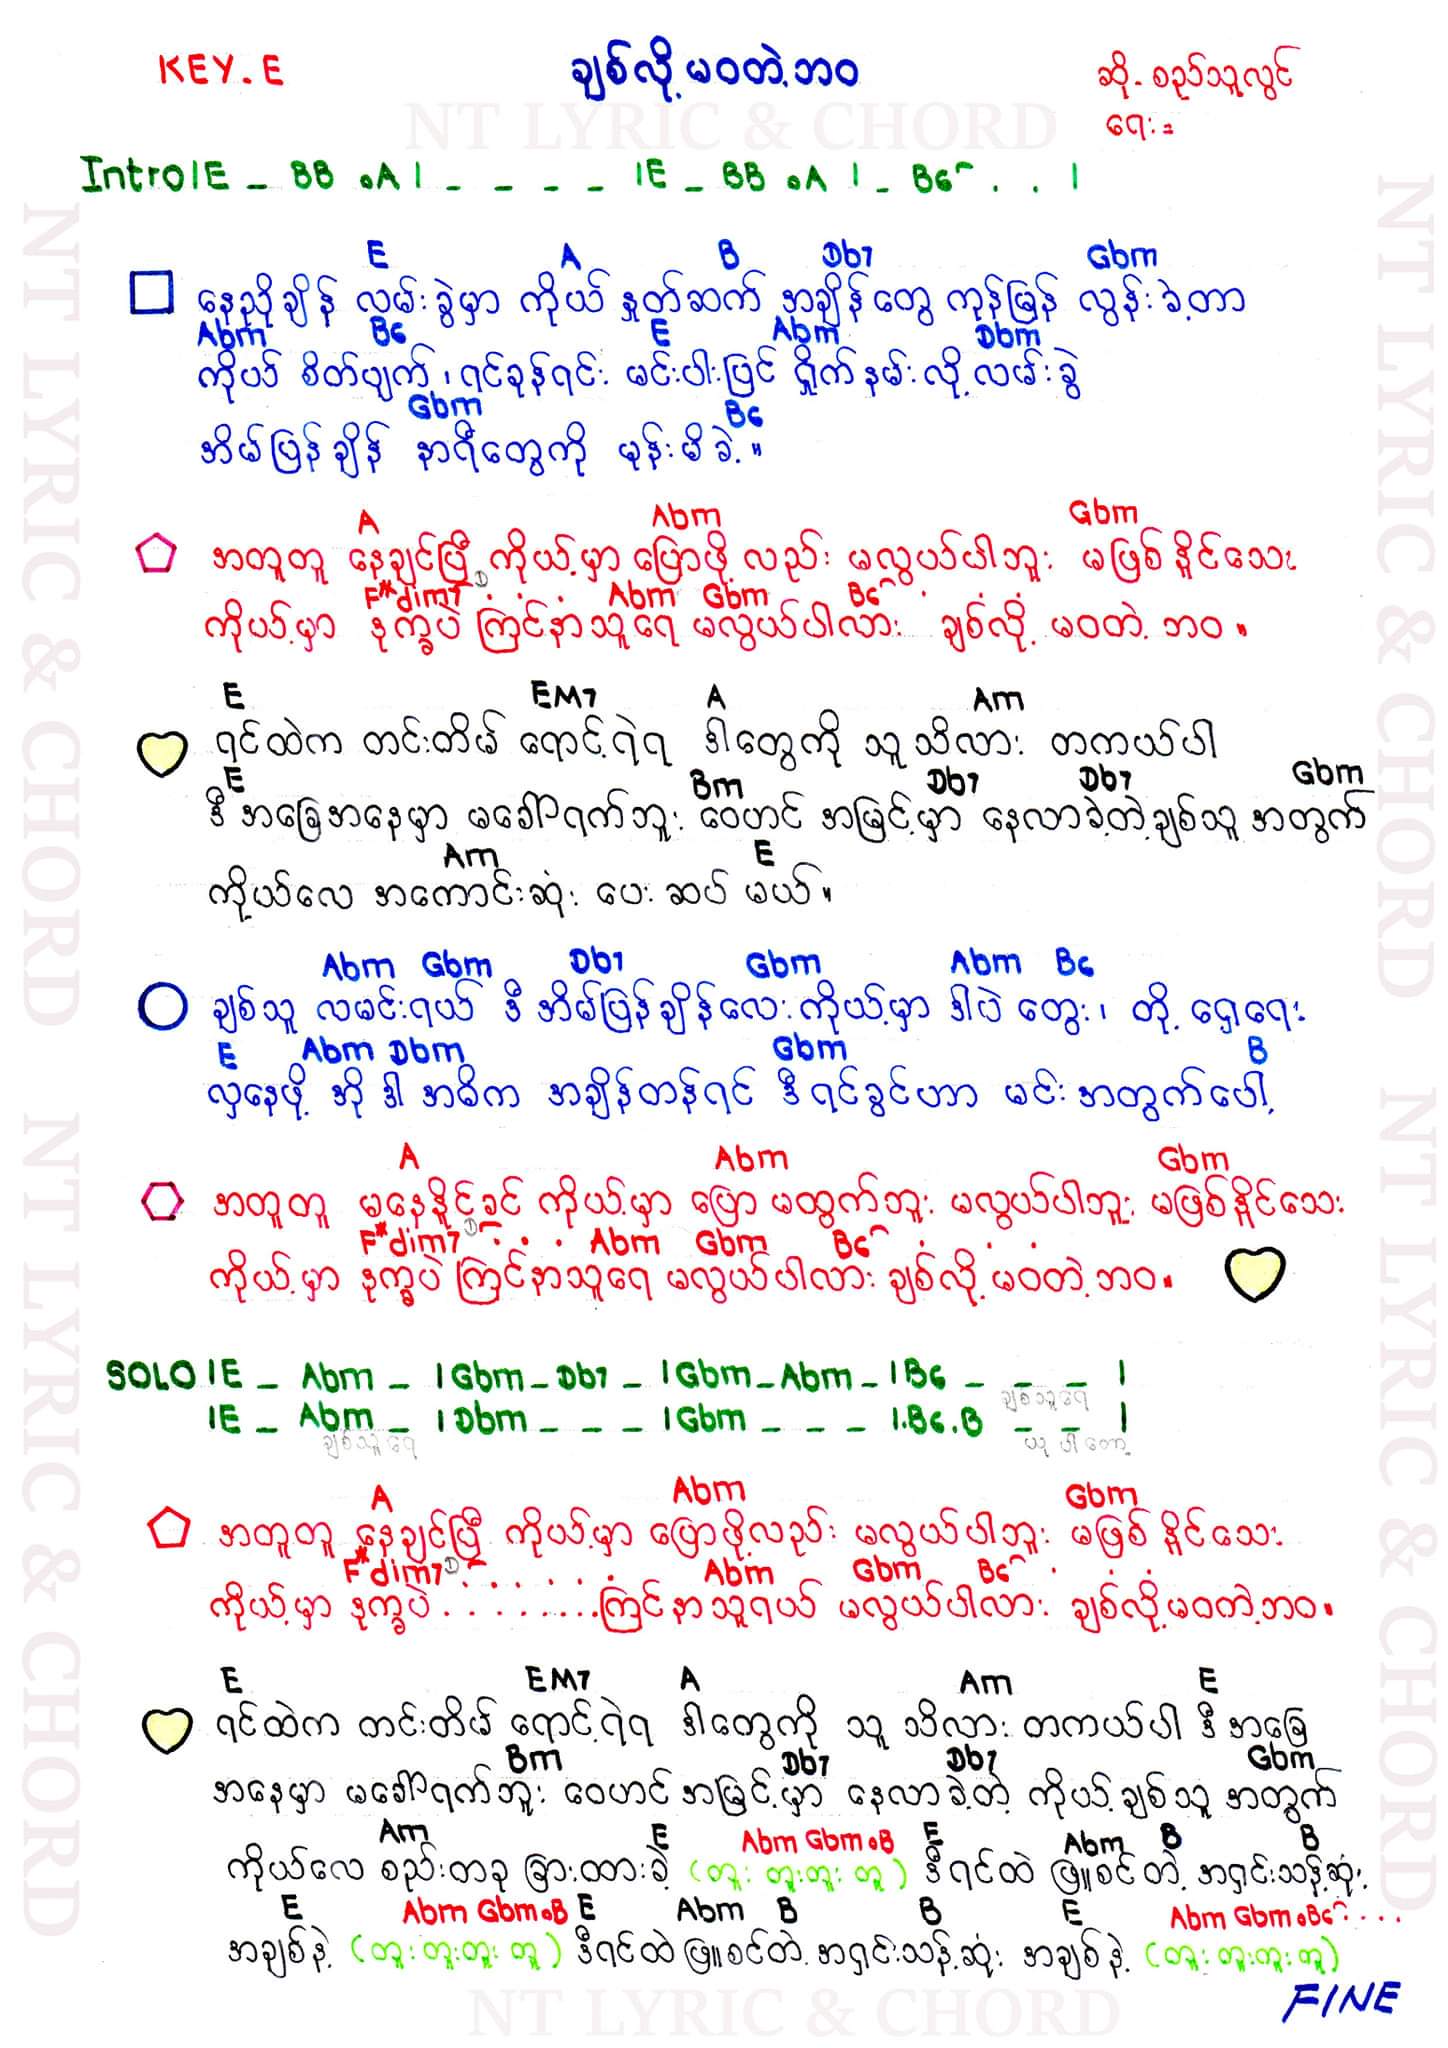 KEY. E
ချစ်လို့မဝတဲ့ဘဝ
ဆို- စည်သူလွင်
ရေး =
NT LYRIC & CHORD
Intro | E _ BB .A | _ _ _ _ | E _ BB .A | _ B6 . . |
E A B Db7 Gbm
နေညိုချိန် လမ်းခွဲမှာ ကိုယ် နှုတ်ဆက် အချိန်တွေ ကုန်မြန် လွန်းခဲ့တာ
Abm B6 E Abm Dbm
ကိုယ် စိတ်ပျက်၊ ရင်ခုန်ရင်း မင်းပါးပြင် ရှိုက်နမ်းလို့ လမ်းခွဲ
Gbm B6
အိမ်ပြန်ချိန် နာရီတွေကို မုန်းမိခဲ့။
A Abm Gbm
အတူတူ နေချင်ပြီ ကိုယ့်မှာ ပြောဖို့ လည်း မလွယ်ပါဘူး မဖြစ်နိုင်သေး
F#dim7 . . . Abm Gbm B6 . . .
ကိုယ့်မှာ ဒုက္ခပဲ ကြင်နာသူရေ မလွယ်ပါလား ချစ်လို့ မဝတဲ့ ဘဝ။
E EM7 A Am
ရင်ထဲက တင်းတိမ် ရောင့်ရဲရ ဒါတွေကို သူ သိလား တကယ်ပါ
E Bm Db7 Db7 Gbm
ဒီ အခြေအနေမှာ မခေါ်ရက်ဘူး ဝေဟင် အမြင့်မှာ နေလာခဲ့တဲ့ ချစ်သူ အတွက်
Am E
ကိုယ်လေ အကောင်းဆုံး ပေး ဆပ် မယ်။
Abm Gbm Db7 Gbm Abm B6
ချစ်သူ လမင်းရယ် ဒီ အိမ်ပြန်ချိန်လေး ကိုယ့်မှာ ဒါပဲ တွေး၊ တို့ ရှေ့ရေး
E Abm Dbm Gbm B
လှနေဖို့ အို ဒါ အဓိက အချိန်တန်ရင် ဒီရင်ခွင်ဟာ မင်း အတွက်ပေါ့
A Abm Gbm
အတူတူ မနေနိုင်ခင် ကိုယ့်မှာ ပြော မထွက်ဘူး မလွယ်ပါဘူး မဖြစ်နိုင်သေး
F#dim7 . . . Abm Gbm B6 . . .
ကိုယ့်မှာ ဒုက္ခပဲ ကြင်နာသူရေ မလွယ်ပါလား ချစ်လို့ မဝတဲ့ဘဝ။
SOLO | E _ Abm _ | Gbm _ Db7 _ | Gbm _ Abm _ | B6 _ _ _ |
ချစ်သူရေ
| E _ Abm _ | Dbm _ _ _ | Gbm _ _ _ | .B6.B _ _ |
ချစ်သူရေ ယုံပါတော့
A Abm Gbm
အတူတူ နေချင်ပြီ ကိုယ့်မှာ ပြောဖို့လည်း မလွယ်ပါဘူး မဖြစ်နိုင်သေး
F#dim7 . . . . . . Abm Gbm B6 . . .
ကိုယ့်မှာ ဒုက္ခပဲ . . . . . . . . . ကြင်နာသူရယ် မလွယ်ပါလား ချစ်လို့မဝတဲ့ဘဝ။
E EM7 A Am E
ရင်ထဲက တင်းတိမ် ရောင့်ရဲရ ဒါတွေကို သူ သိလား တကယ်ပါ ဒီ အခြေ
Bm Db7 Db7 Gbm
အနေမှာ မခေါ်ရက်ဘူး ဝေဟင် အမြင့်မှာ နေလာခဲ့တဲ့ ကိုယ့်ချစ်သူ အတွက်
Am E Abm Gbm.B E Abm B B
ကိုယ်လေ စည်းတခု ခြားထားခဲ့ (တူး တူးတူး တူ) ဒီရင်ထဲ ဖြူစင်တဲ့ အရှင်းသန့်ဆုံး
E Abm Gbm.B E Abm B B E Abm Gbm.B6 . . . .
အချစ်နဲ့ (တူး တူးတူး တူ) ဒီရင်ထဲ ဖြူစင်တဲ့ အရှင်းသန့်ဆုံး အချစ်နဲ့ (တူး တူးတူး တူ)
FINE
NT LYRIC & CHORD
NT LYRIC & CHORD NT LYRIC & CHORD
NT LYRIC & CHORD NT LYRIC & CHORD